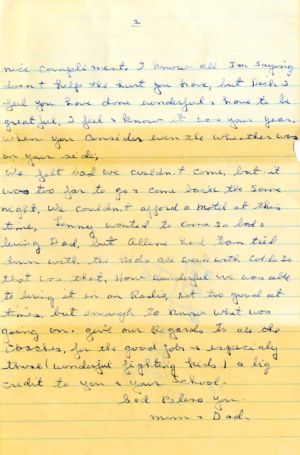 2
nice compliment. I know all I'm saying
don't help the hurt you have, but Dick I
feel you have done wonderful & have to be
greatful, I feel & know it was your year.
When you consider even the wheather was
on your side,
We felt bad we couldn't come, but it
was too far to go & come back the same
night, We couldn't afford a motel at this
time, wanted to come so bad &
bring Dad, but Allene had him tied
down with the kids all week with colds so
that was that, How wonderful we was able
to bring it in on Radio, not too good at
times, but enough to know what was
going on. give our Regards to all the
Coaches, for the good jobs & especialy
those! wonderful fighting kids! a big
credit to you & your School.
God Bless you
Mom & Dad.